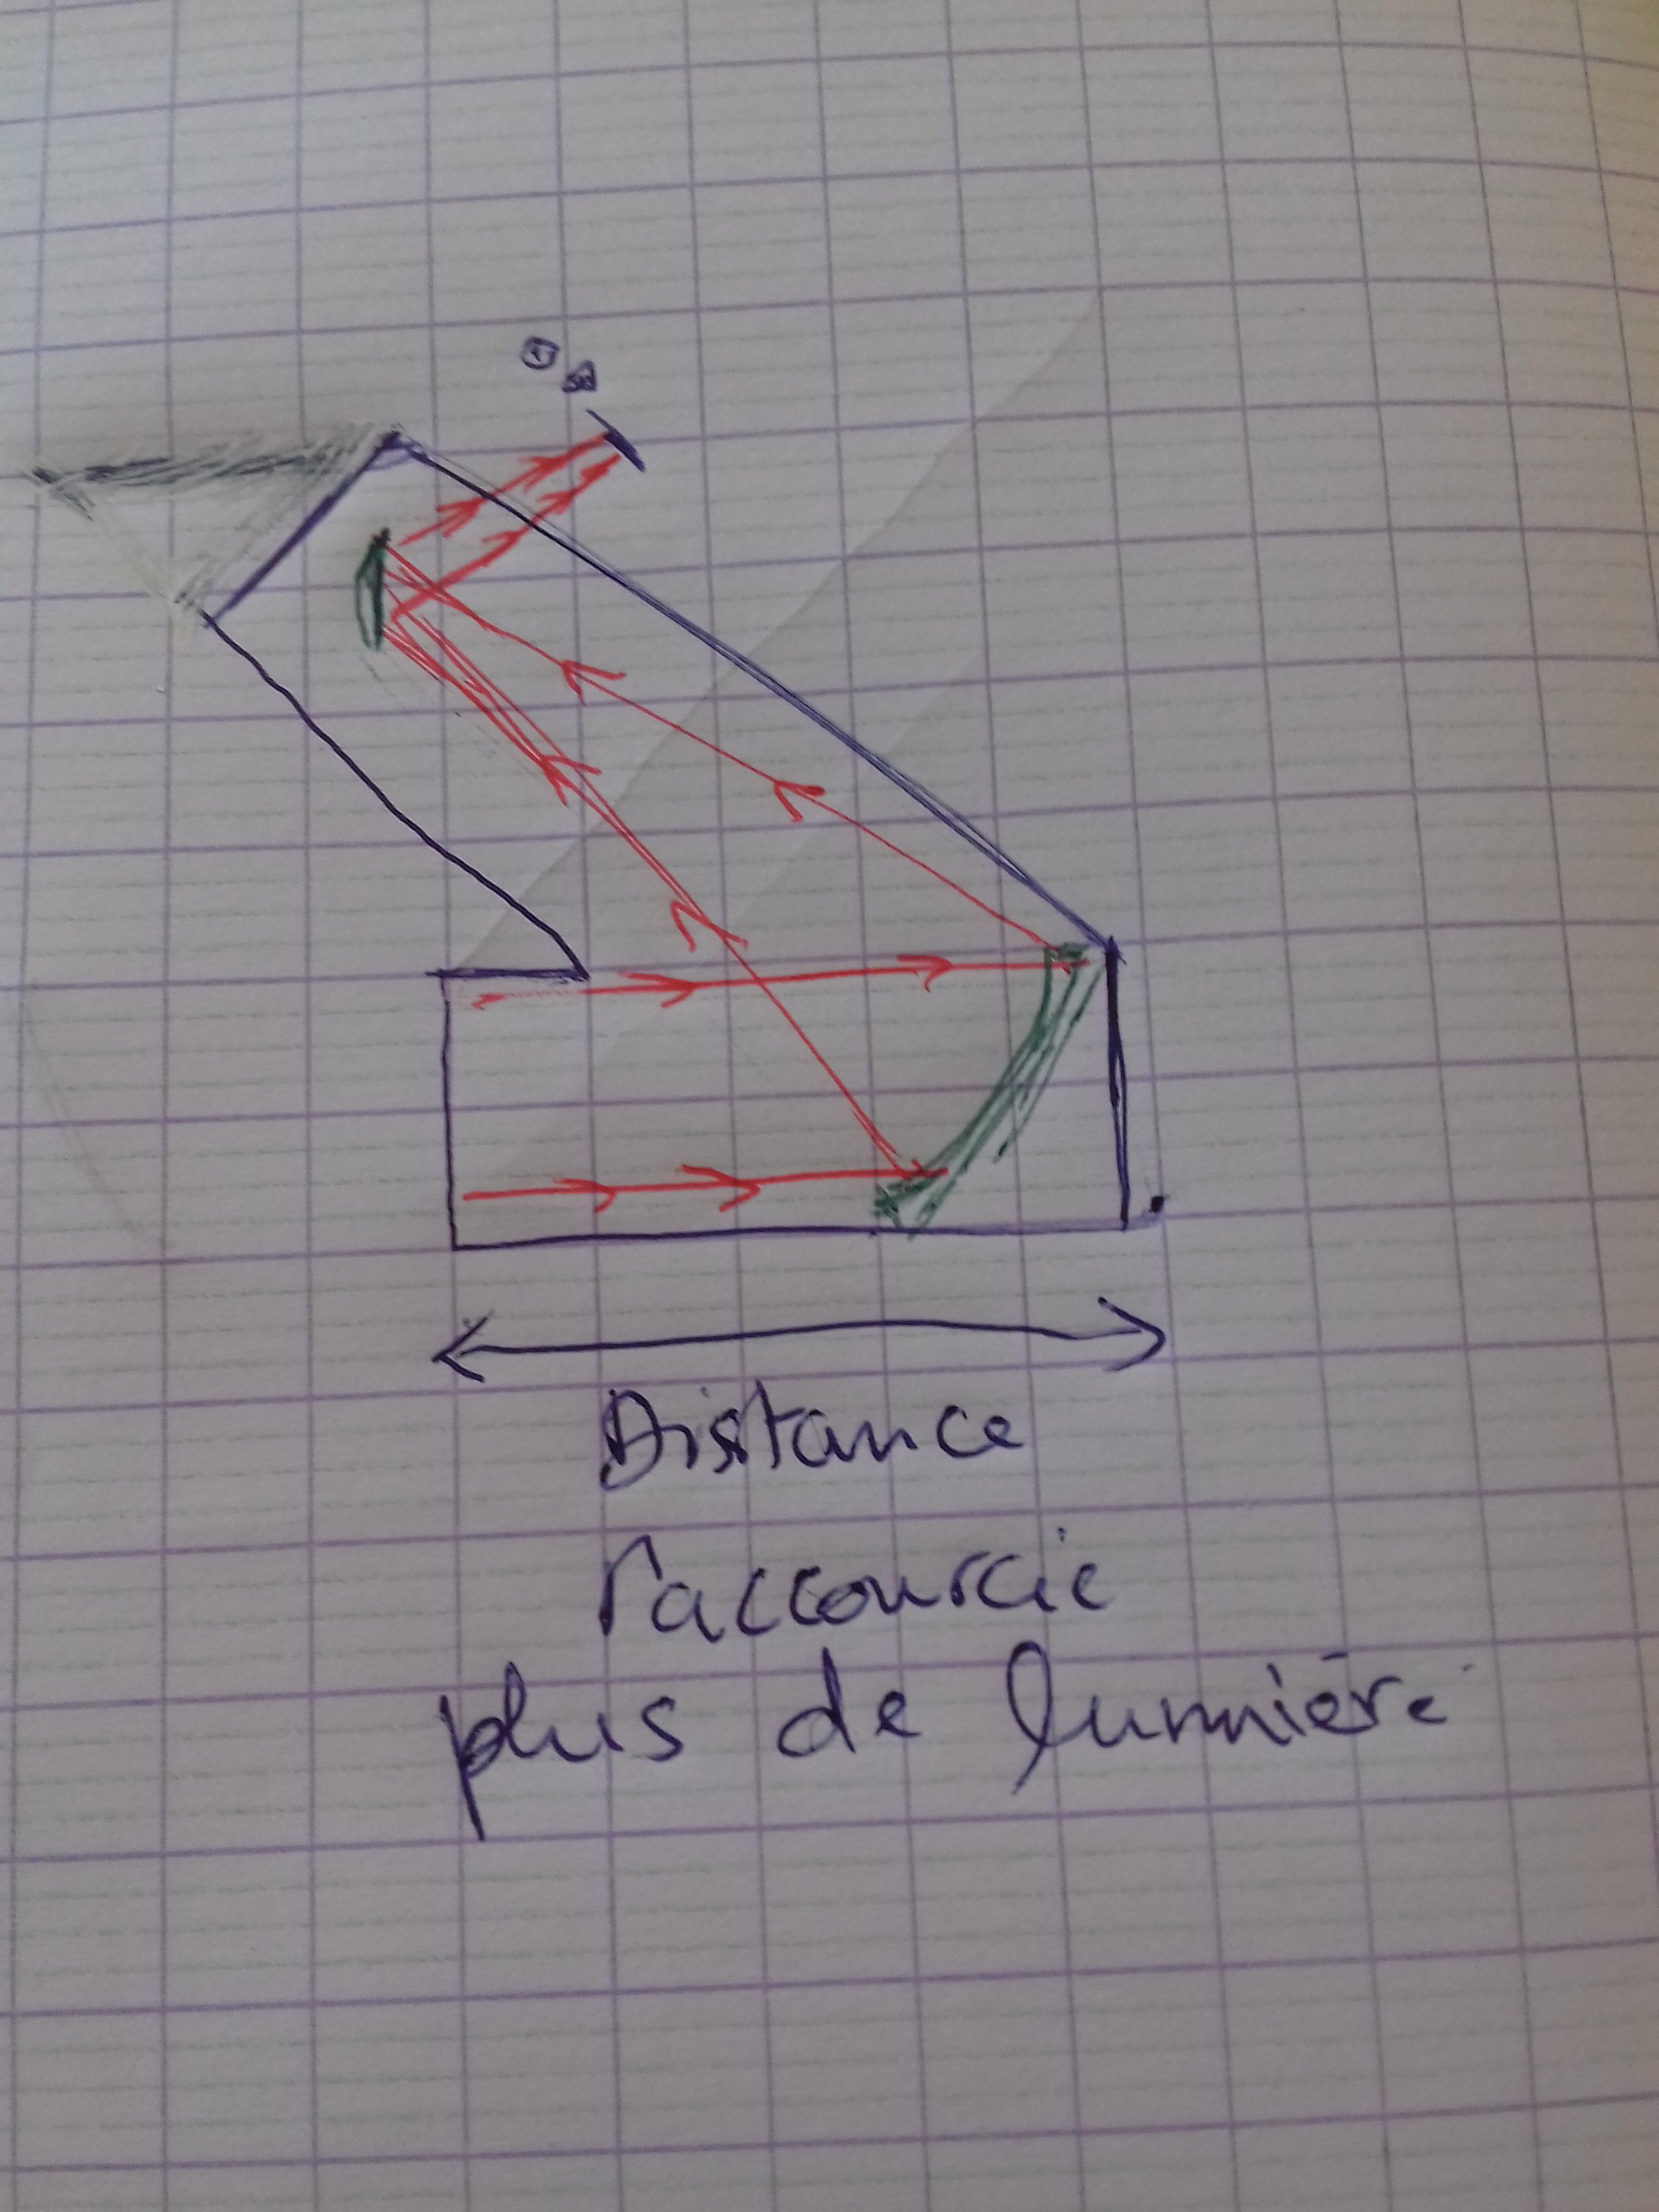 Distance
raccourcie
plus de lumière